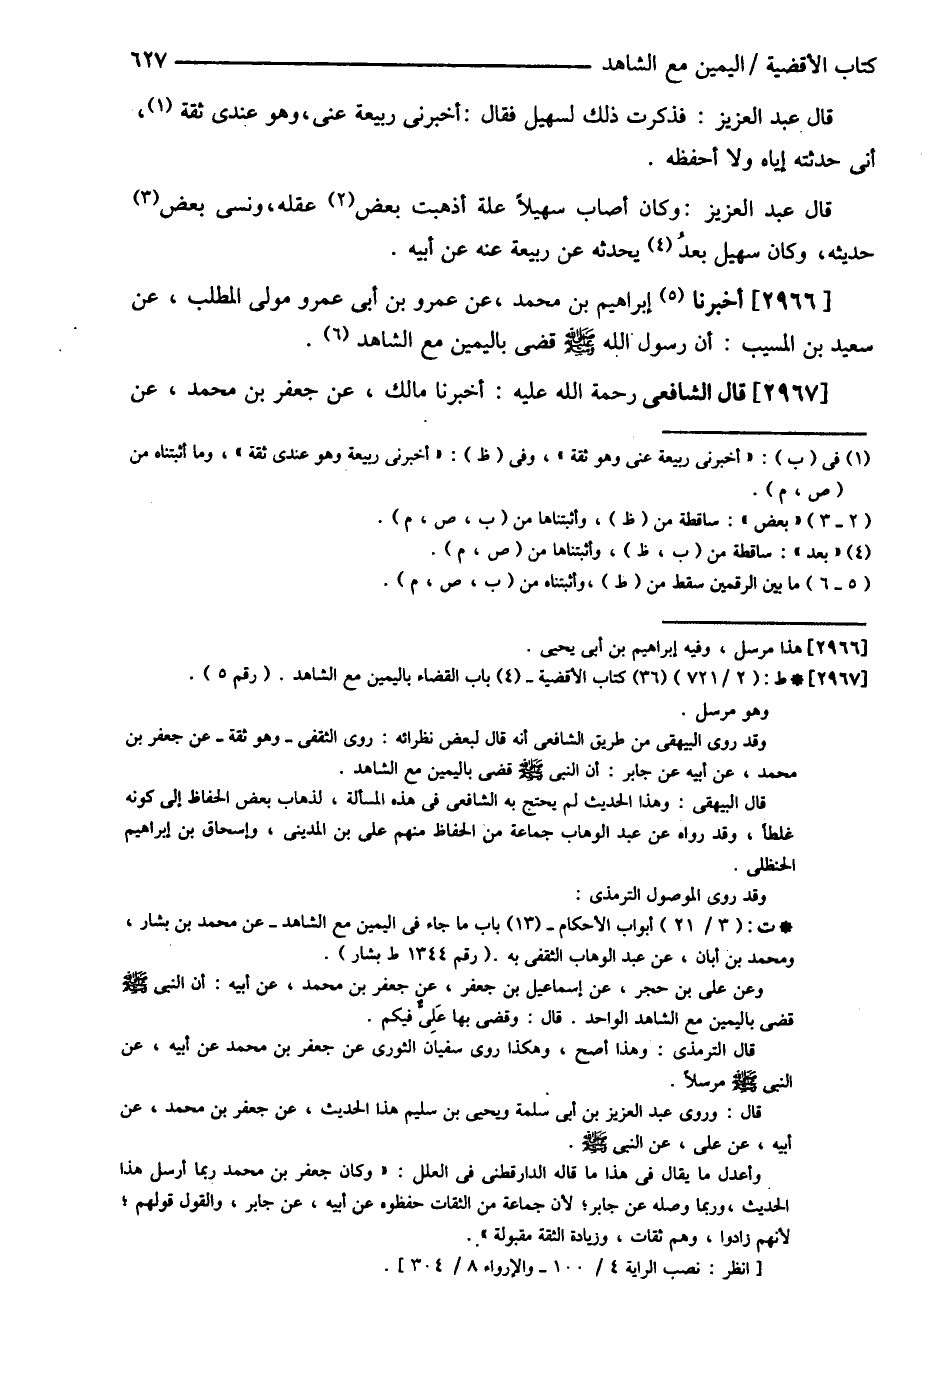 كتاب الأقضية / اليمين مع الشاهد ٦٢٧
قال عبد العزيز : فذكرت ذلك لسهيل فقال :أخبرنى ربيعة عنى،وهو عندى ثقة (١)،
أنى حدثته إياه ولا أحفظه .
قال عبد العزيز :وكان أصاب سهيلاً علة أذهبت بعض(٢) عقله،ونسى بعض(٣)
حديثه، وكان سهيل بعدُ (٤) يحدثه عن ربيعة عنه عن أبيه .
[٢٩٦٦] أخبرنا (٥) إبراهيم بن محمد ،عن عمرو بن أبى عمرو مولى المطلب ، عن
سعيد بن المسيب : أن رسول الله ﷺ قضى باليمين مع الشاهد (٦) .
[٢٩٦٧] قال الشافعى رحمة الله عليه : أخبرنا مالك ، عن جعفر بن محمد ، عن
(١) فى ( ب ) : « أخبرنى ربيعة عنى وهو ثقة » ، وفى ( ظ ) : « أخبرنى ربيعة وهو عندى ثقة » ، وما أثبتناه من
( ص ، م ) .
( ٢ ـ ٣ ) « بعض » : ساقطة من ( ظ ) ، وأثبتناها من ( ب ، ص ، م ) .
(٤) « بعد » : ساقطة من ( ب ، ظ ) ، وأثبتناها من ( ص ، م ) .
( ٥ ـ ٦ ) ما بين الرقمين سقط من ( ظ ) ،وأثبتناه من ( ب ، ص ، م ) .
[٢٩٦٦] هذا مرسل ، وفيه إبراهيم بن أبى يحيى .
[٢٩٦٧] * ط : ( ٢ / ٧٢١ ) (٣٦) كتاب الأقضية ـ (٤) باب القضاء باليمين مع الشاهد . ( رقم ٥ ) .
وهو مرسل .
وقد روى البيهقى من طريق الشافعى أنه قال لبعض نظرائه : روى الثقفى ـ وهو ثقة ـ عن جعفر بن
محمد ، عن أبيه عن جابر : أن النبى ﷺ قضى باليمين مع الشاهد .
قال البيهقى : وهذا الحديث لم يحتج به الشافعى فى هذه المسألة ، لذهاب بعض الحفاظ إلى كونه
غلطاً ، وقد رواه عن عبد الوهاب جماعة من الحفاظ منهم على بن المدينى ، وإسحاق بن إبراهيم
الحنظلى .
وقد روى الموصول الترمذى :
* ت : ( ٣ / ٢١ ) أبواب الأحكام ـ (١٣) باب ما جاء فى اليمين مع الشاهد ـ عن محمد بن بشار ،
ومحمد بن أبان ، عن عبد الوهاب الثقفى به .( رقم ١٣٤٤ ط بشار ) .
وعن على بن حجر ، عن إسماعيل بن جعفر ، عن جعفر بن محمد ، عن أبيه : أن النبى ﷺ
قضى باليمين مع الشاهد الواحد . قال : وقضى بها عَلِىٌّ فيكم .
قال الترمذى : وهذا أصح ، وهكذا روى سفيان الثورى عن جعفر بن محمد عن أبيه ، عن
النبى ﷺ مرسلاً .
قال : وروى عبد العزيز بن أبى سلمة ويحيى بن سليم هذا الحديث ، عن جعفر بن محمد ، عن
أبيه ، عن على ، عن النبى ﷺ .
وأعدل ما يقال فى هذا ما قاله الدارقطنى فى العلل : « وكان جعفر بن محمد ربما أرسل هذا
الحديث ،وربما وصله عن جابر؛ لأن جماعة من الثقات حفظوه عن أبيه ، عن جابر ، والقول قولهم ؛
لأنهم زادوا ، وهم ثقات ، وزيادة الثقة مقبولة » .
[ انظر : نصب الراية ٤ / ١٠٠ ـ والإرواء ٨ / ٣٠٤ ] .